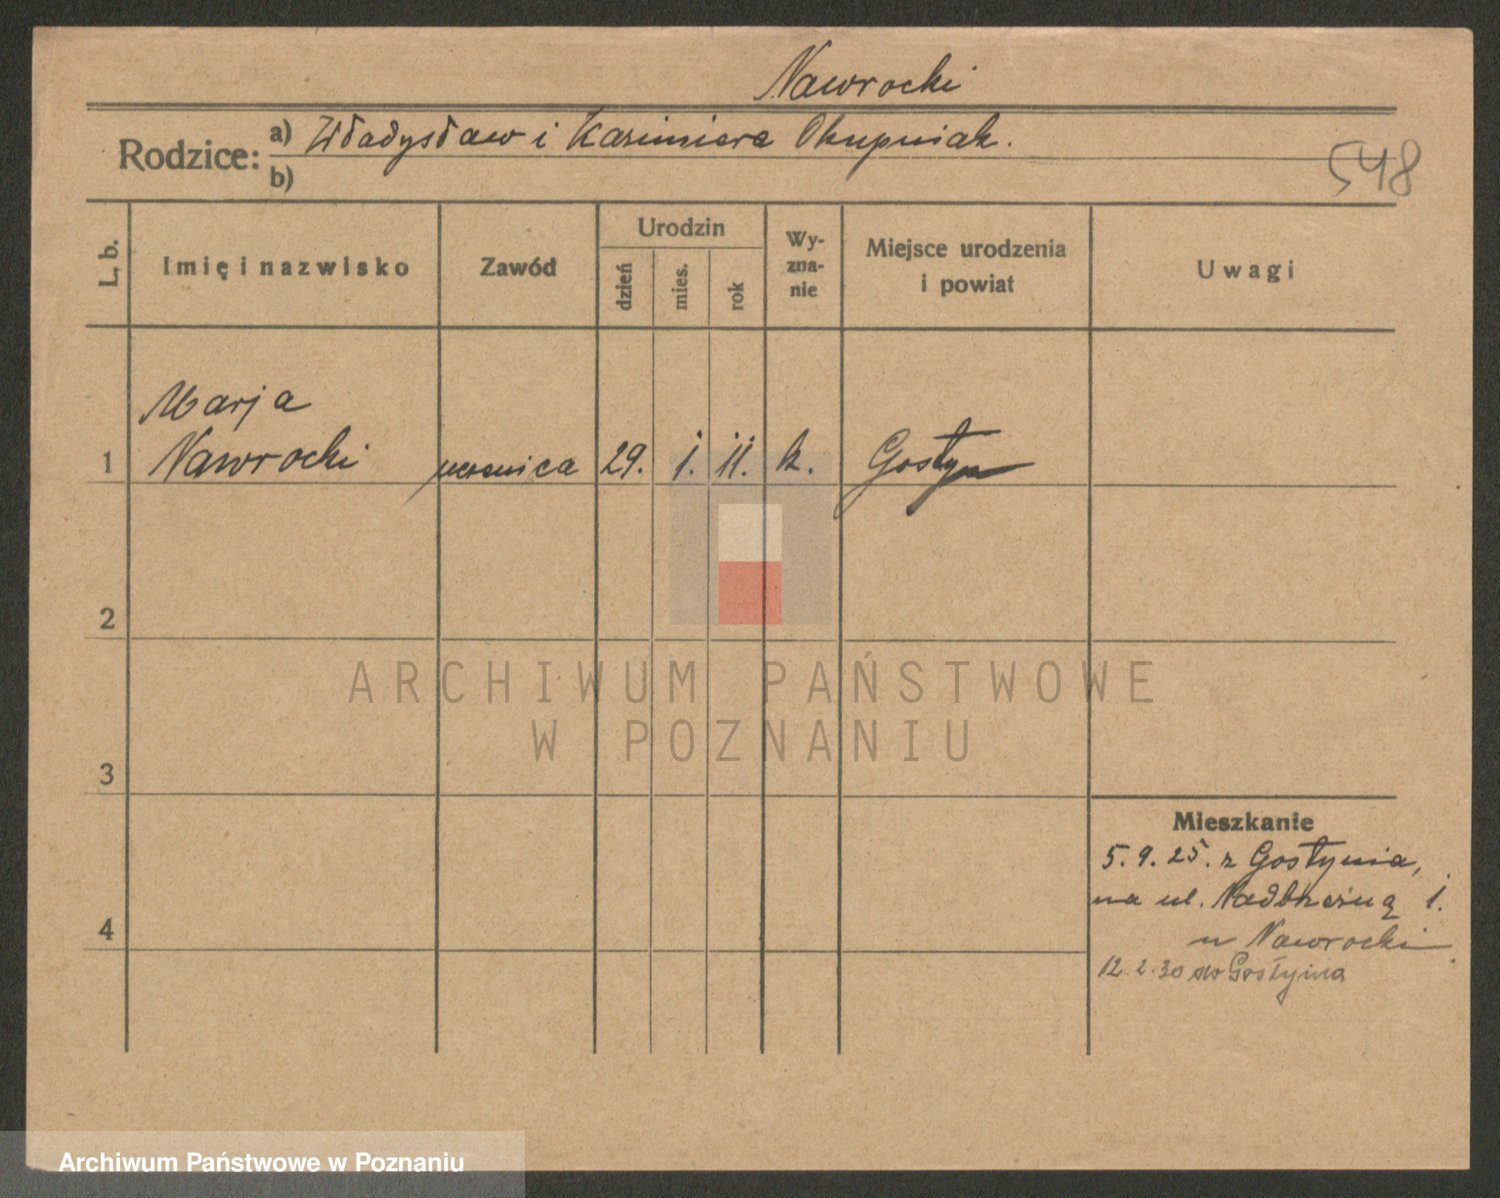 Nawrocki
Rodzice: a) Władysław i Kazimiera Okupniak.
b)
548
L. b.
Imię i nazwisko
Zawód
Urodzin
dzień
mies.
rok
Wy-
zna-
nie
Miejsce urodzenia
i powiat
Uwagi
Marja
1 Nawrocki uczenica 29. 1. 11. k. Gostyn
2
ARCHIWUM PAŃSTWOWE
W POZNANIU
3
Mieszkanie
5. 9. 25. z Gostynia,
na ul. Nadbrzeżną 1.
4
u Nawrocki.
12. 2. 30 do Gostynia
Archiwum Państwowe w Poznaniu